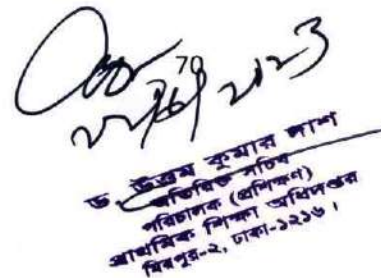 70
ড. উত্তম কুমার দাশ
অতিরিক্ত সচিব
পরিচালক (প্রশিক্ষণ)
প্রাথমিক শিক্ষা অধিদপ্তর
মিরপুর-২, ঢাকা-১২১৬।